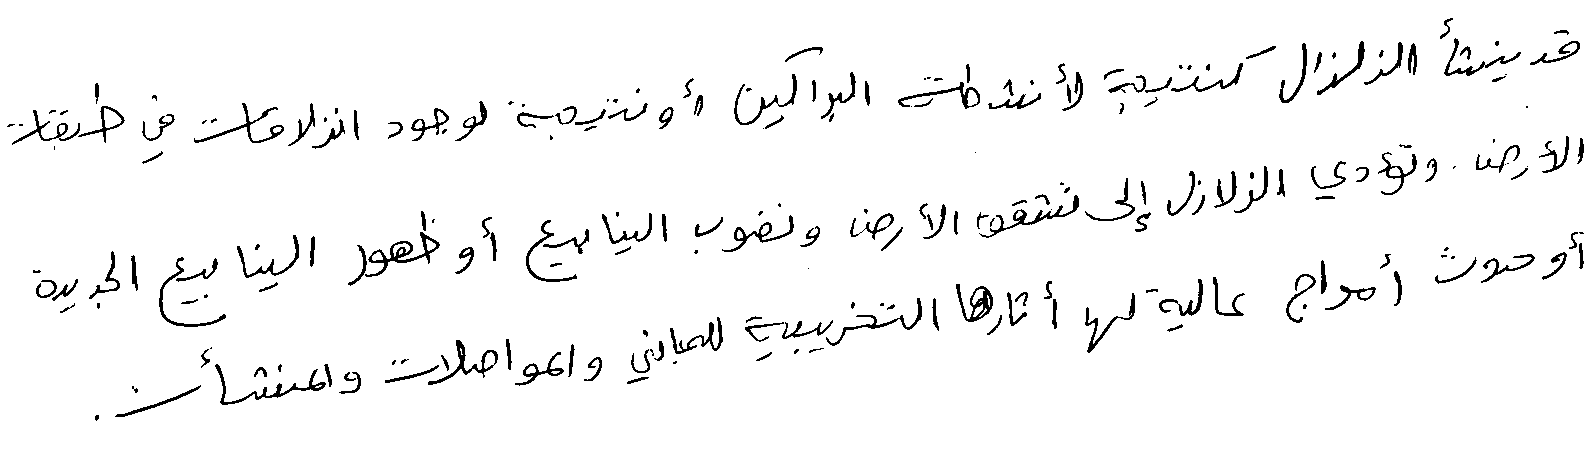 قد ينشأ الزلزال كنتيجة لأنشطة البراكين أو نتيجة لوجود انزلاقات في طبقات
الأرض. وتؤدي الزلازل إلى تشقق الأرض ونضوب الينابيع أو ظهور الينابيع الجديدة
أو حدوث أمواج عالية لها أثارها التخريبية للمباني والمواصلات والمنشأت.